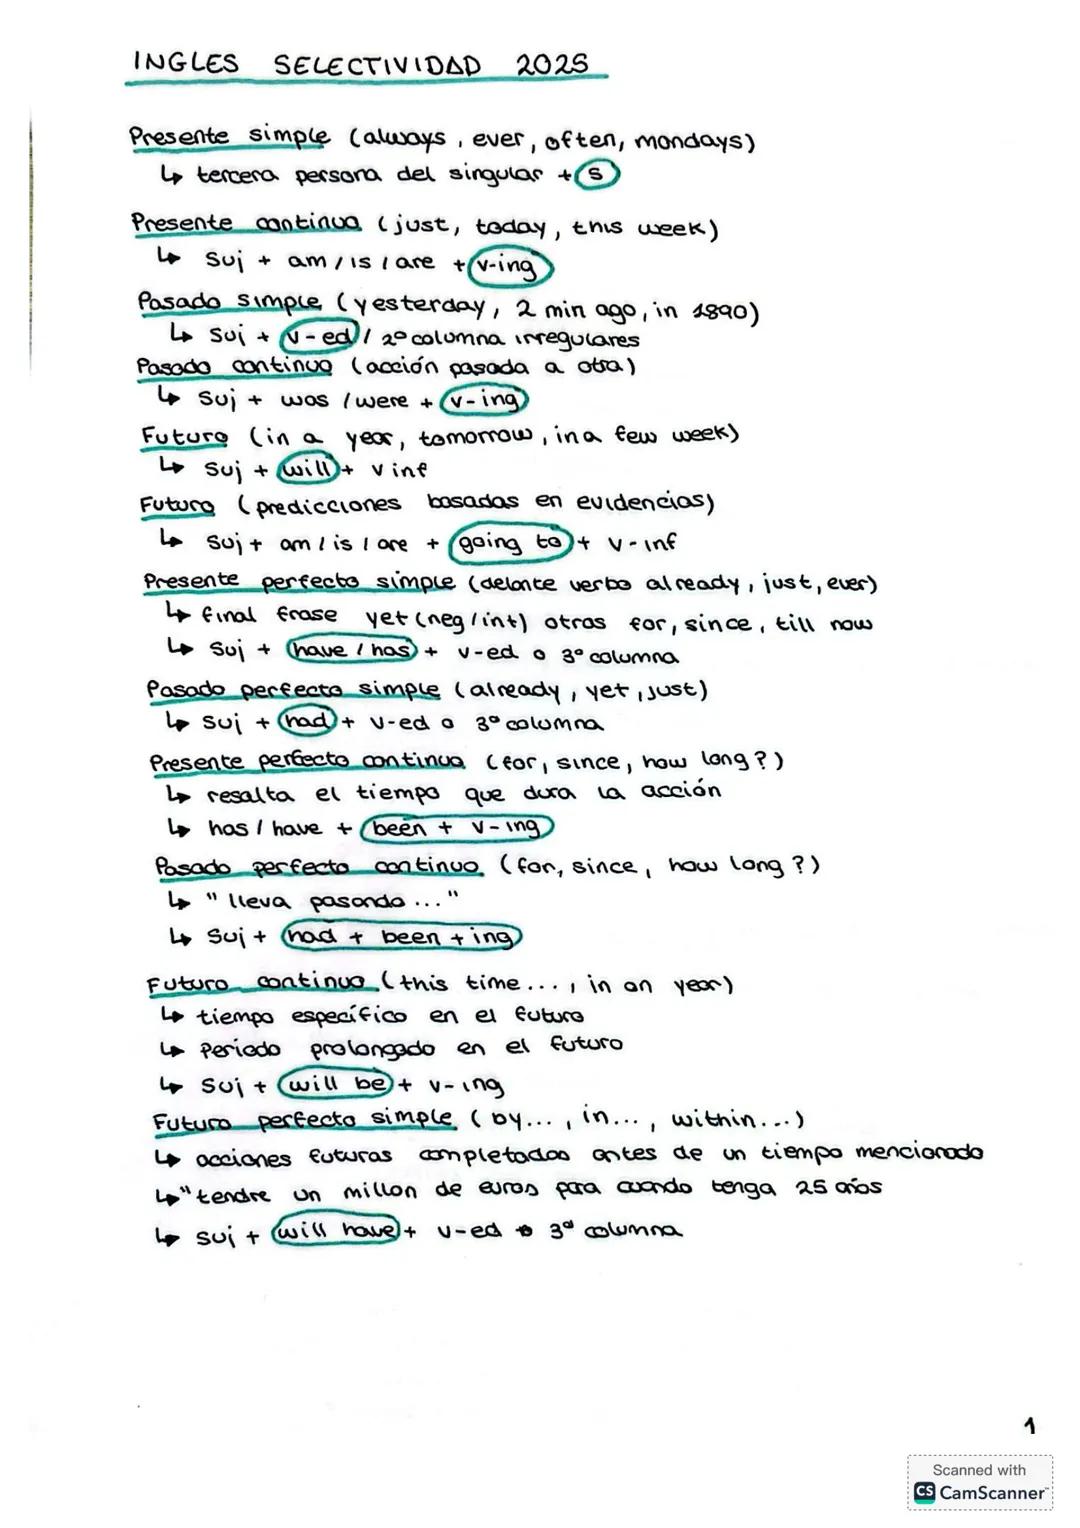 INGLES SELECTIVIDAD 2025
Presente simple (always, ever, often, mondays)
↳ tercera persona del singular + s
Presente continuo (just, today, this week)
↳ Suj + am / is / are + v-ing
Pasado simple (yesterday, 2 min ago, in 1890)
↳ Suj + v-ed / 2º columna irregulares
Pasado continuo (acción pasada a otra)
↳ Suj + was / were + v-ing
Futuro (in a year, tomorrow, in a few week)
↳ Suj + will + v inf
Futuro (predicciones basadas en evidencias)
↳ Suj + am / is / are + going to + v-inf
Presente perfecto simple (delante verbo already, just, ever)
↳ final frase yet (neg / int) otros for, since, till now
↳ Suj + have / has + v-ed o 3º columna
Pasado perfecto simple (already, yet, just)
↳ Suj + had + v-ed o 3º columna
Presente perfecto continuo (for, since, how long?)
↳ resalta el tiempo que dura la acción
↳ has / have + been + v-ing
Pasado perfecto continuo (for, since, how long?)
↳ "lleva pasando..."
↳ Suj + had + been + ing
Futuro continuo (this time..., in an year)
↳ tiempo específico en el futuro
↳ Periodo prolongado en el futuro
↳ Suj + will be + v-ing
Futuro perfecto simple (by..., in..., within...)
↳ acciones futuras completadas antes de un tiempo mencionado
↳ "tendre un millon de euros para cuando tenga 25 años
↳ suj + will have + v-ed o 3ª columna
1
Scanned with
CS CamScanner